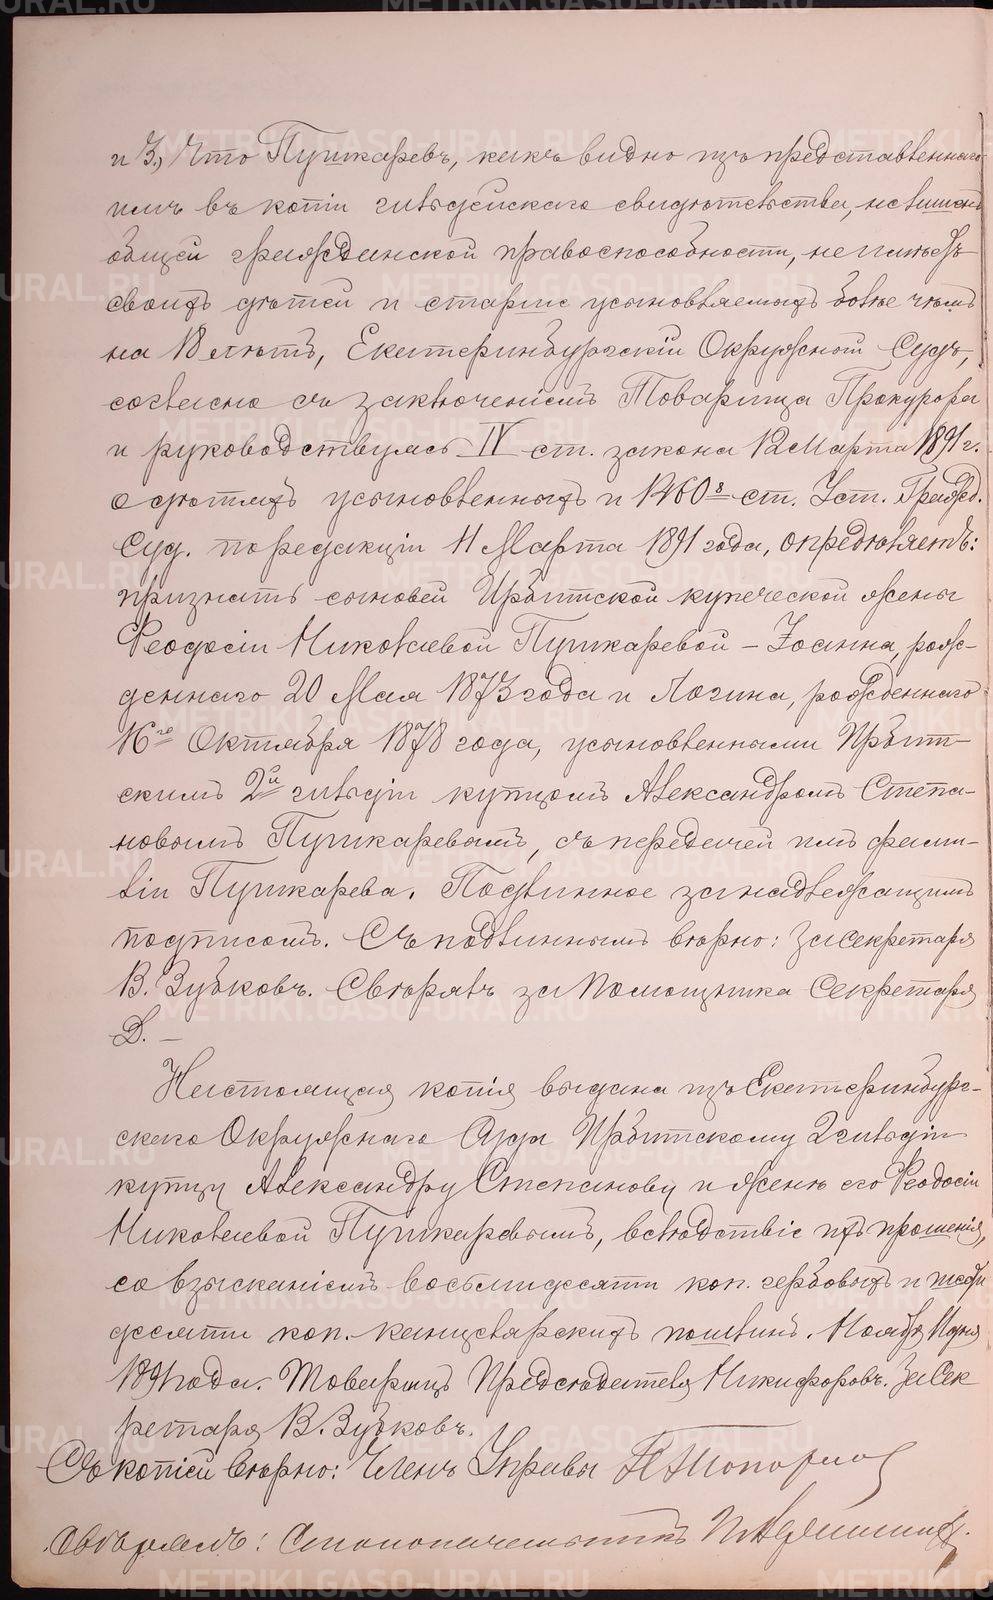 и 3., Что Пушкаревъ, какъ видно изъ представленнаго
имъ въ копіи гильдейскаго свидѣтельства, не лишенъ
общей гражданской правоспособности, не имѣетъ
своихъ дѣтей и старше усыновляемыхъ болѣе чѣмъ
на 18 лѣтъ, Екатеринбургскій Окружной Судъ,
согласно съ заключеніемъ Товарища Прокурора
и руководствуясь IV ст. закона 12 Марта 1891 г.
о дѣтяхъ усыновленныхъ и 1460⁸ ст. Уст. Гражд.
Суд. по редакціи 11 Марта 1891 года, опредѣляетъ:
признать сыновей Ирбитской купеческой жены
Феодосіи Николаевой Пушкаревой – Іоанна, рож-
деннаго 20 Мая 1873 года и Логина, рожденнаго
16го Октября 1878 года, усыновленными Ирбит-
скимъ 2й гильдіи купцомъ Александромъ Степа-
новымъ Пушкаревымъ, съ передачей имъ фами-
ліи Пушкарева. Подлинное за надлежащимъ
подписомъ. Съ подлиннымъ вѣрно: За Секретаря
В. Зубковъ. Свѣрялъ за Помощника Секретаря
Д. –
Настоящая копія выдана изъ Екатеринбург-
скаго Окружнаго Суда Ирбитскому 2 гильдіи
купцу Александру Степанову и женѣ его Феодосіи
Николаевой Пушкаревымъ, вслѣдствіе ихъ прошенія,
со взысканіемъ восьмидесяти коп. гербовыхъ и
десяти коп. канцелярскихъ пошлинъ. Ноября дня
1891 года. Товарищъ Предсѣдателя Никифоровъ. За Сек
ретаря В. Зубковъ.
Съ копіей вѣрно: Членъ Управы
Свѣрялъ: Столоначальникъ
METRIKI.GASO-URAL.RU